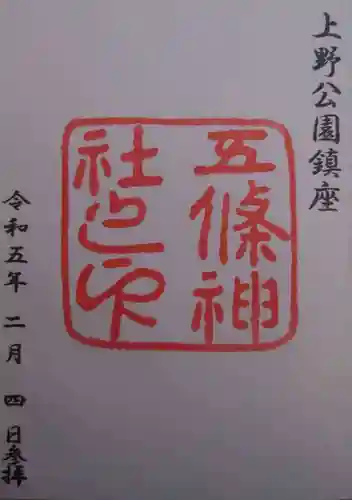 上野公園鎮座
五條神
社之印
令和五年 二月 四 日参拝